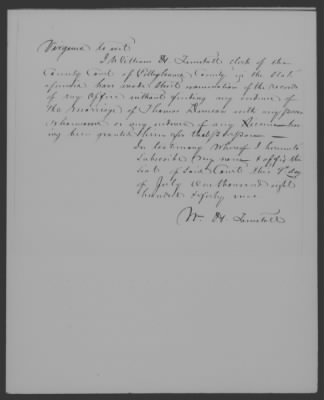 Virginia to wit
I William H Tunstall clerk of the
County Court of Pittsylvania County in the State
aforesaid have made strict examination of the records
of my Office without finding any evidence of
the marriage of Thomas with any person
whomsoever or any evidence of any License hav
ing been granted him for that purpose
In testimony whereof I hereunto
subscribe my name & affix the
seal of said Court this day
of July One thousand eight
hundred & fifty one
Wm H Tunstall